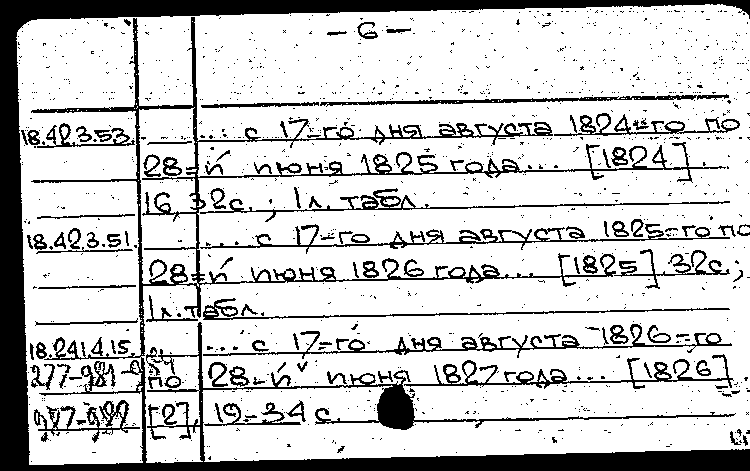 — 6 —
18.423.53. ... с 17=го дня августа 1824=го по
28=й июня 1825 года... [1824].
16, 32с.; 1л. табл.
18.423.51. ... с 17-го дня августа 1825=го по
28=й июня 1826 года... [1825] 32с.;
1л. табл.
18.241.4.15. ... с 17=го дня августа 1826=го
по 28=й июня 1827 года... [1826].
[2], 19-34 с.